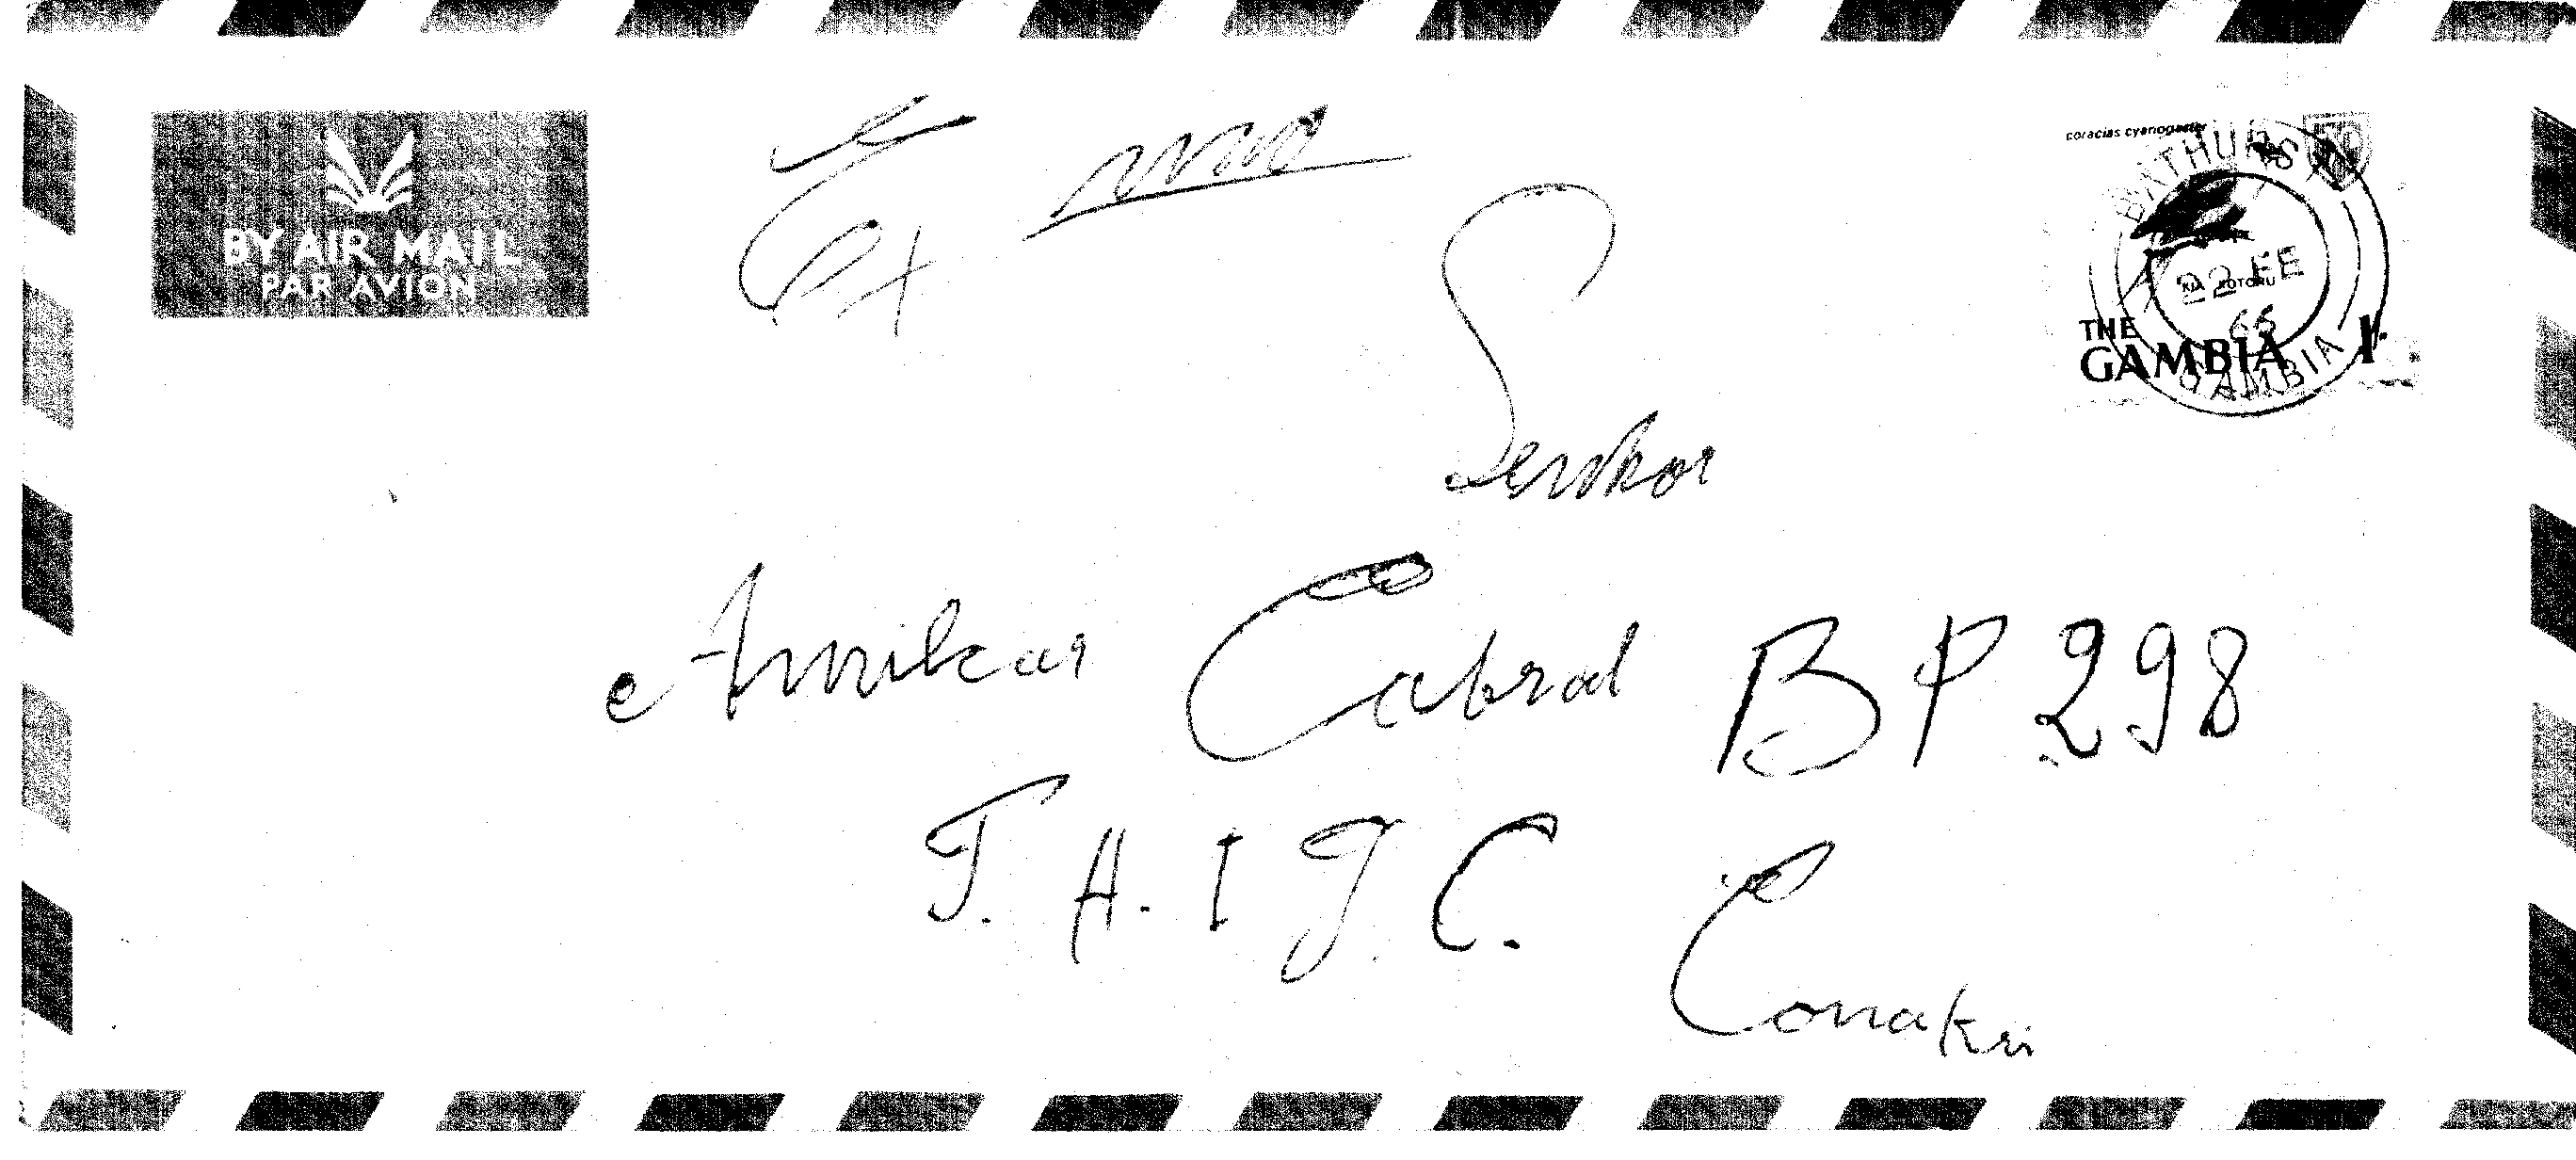 BY AIR MAIL
PAR AVION
Ex mo
Senhor
Amilcar Cabral BP 298
P. A. I G C.
Conakri
coracias cyanogaster
BATHURST
22 FE
66
KOTORU
THE
GAMBIA 1/-
GAMBIA